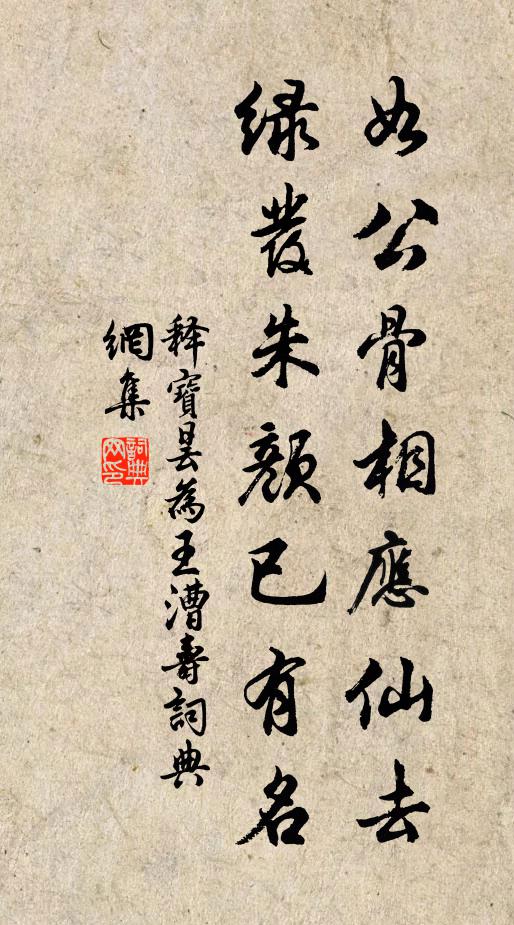 如公骨相應仙去
綠發朱顏已有名
釋寶曇為王漕壽詞典
網集
詞典
网印